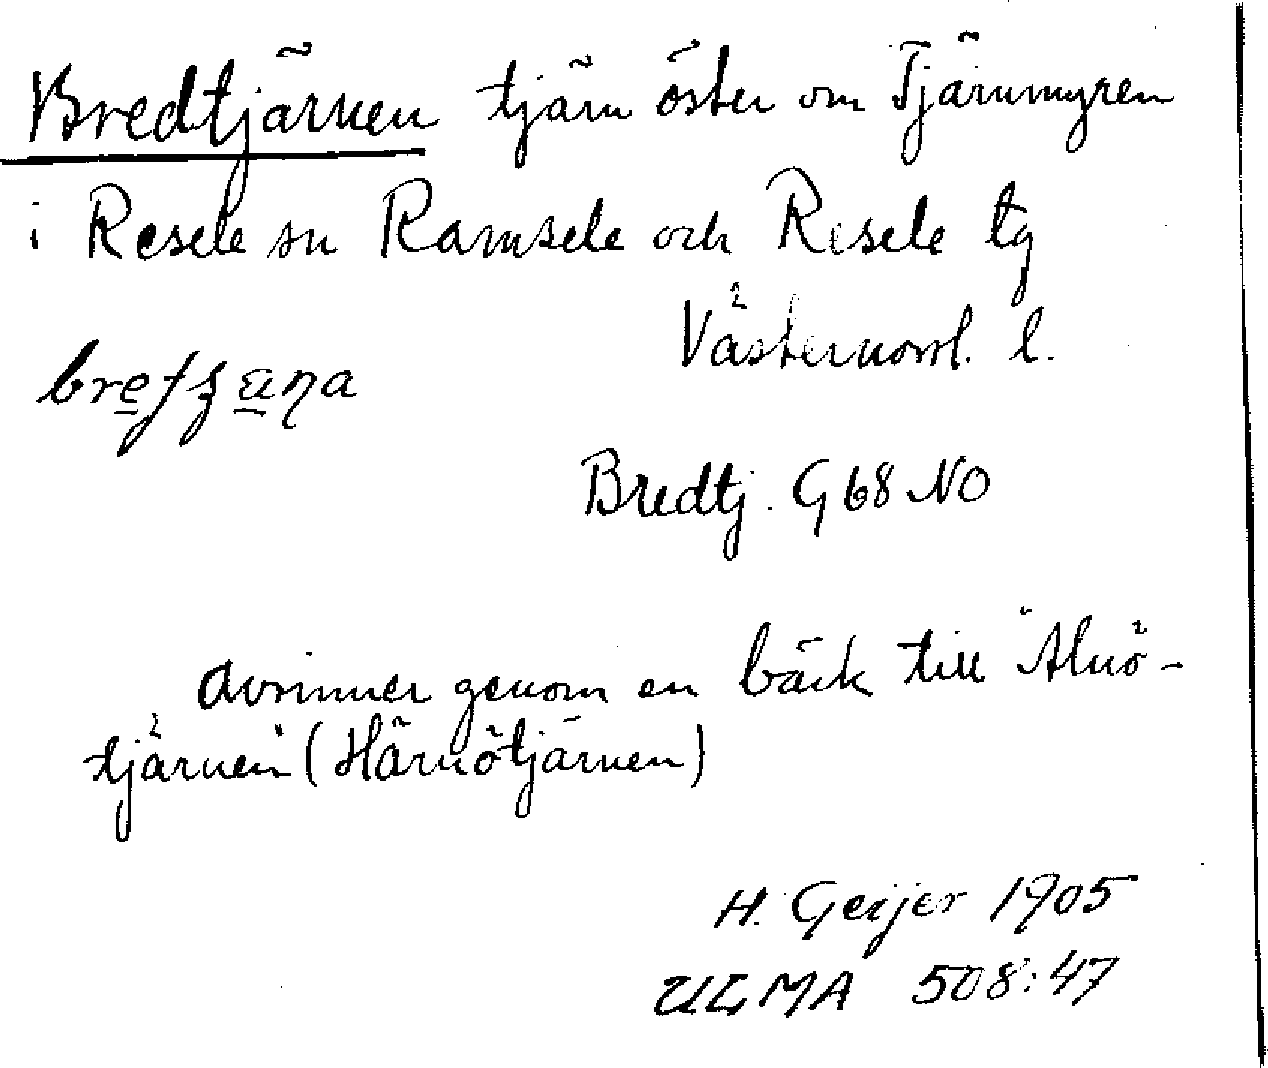 Bredtjärnen tjärn öster om Tjärnmyren
i Resele sn Ramsele och Resele tg
Västernorrl. l.
Bredtj. G 68 NO
avrinner genom en bäck till "Alnö-
tjärnen" (Härnötjärnen)
H. Geijer 1905
ULMA 508:47